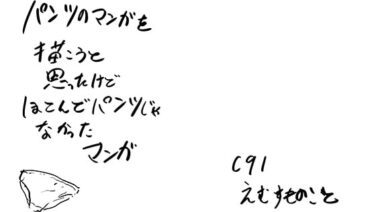 パンツのマンガを
描こうと
思ったけど
ほとんどパンツじゃ
なかった
マンガ
C91
えむすものこと